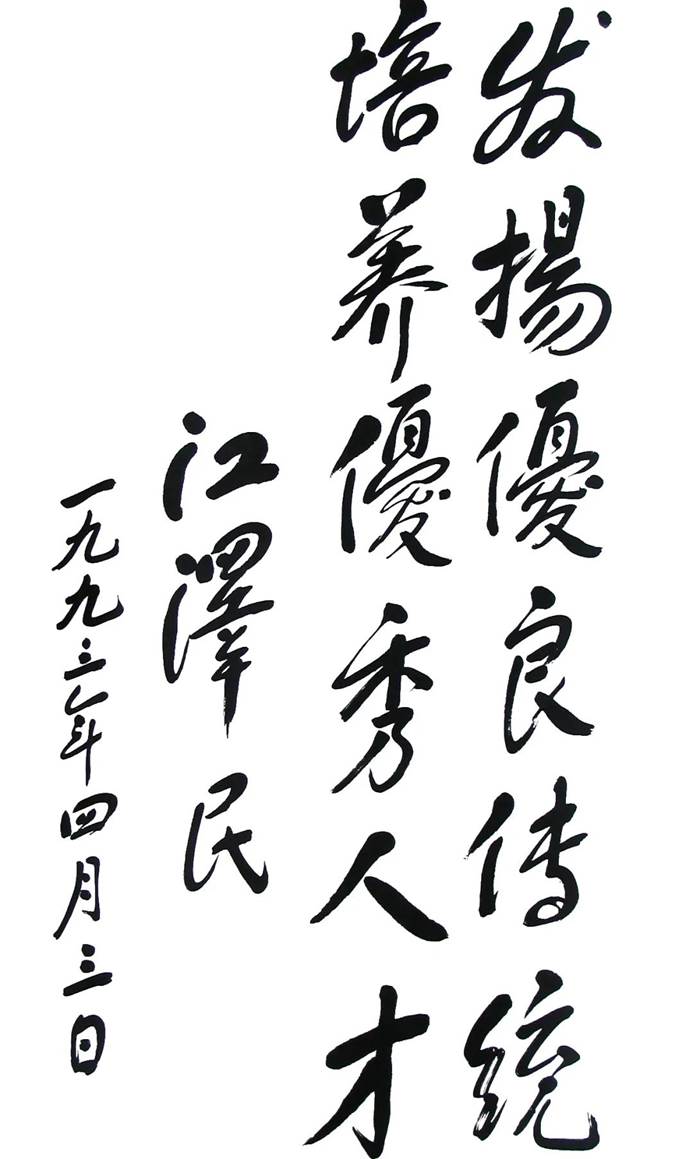 发揚優良传統
培养優秀人才
江澤民
一九九三年四月三日